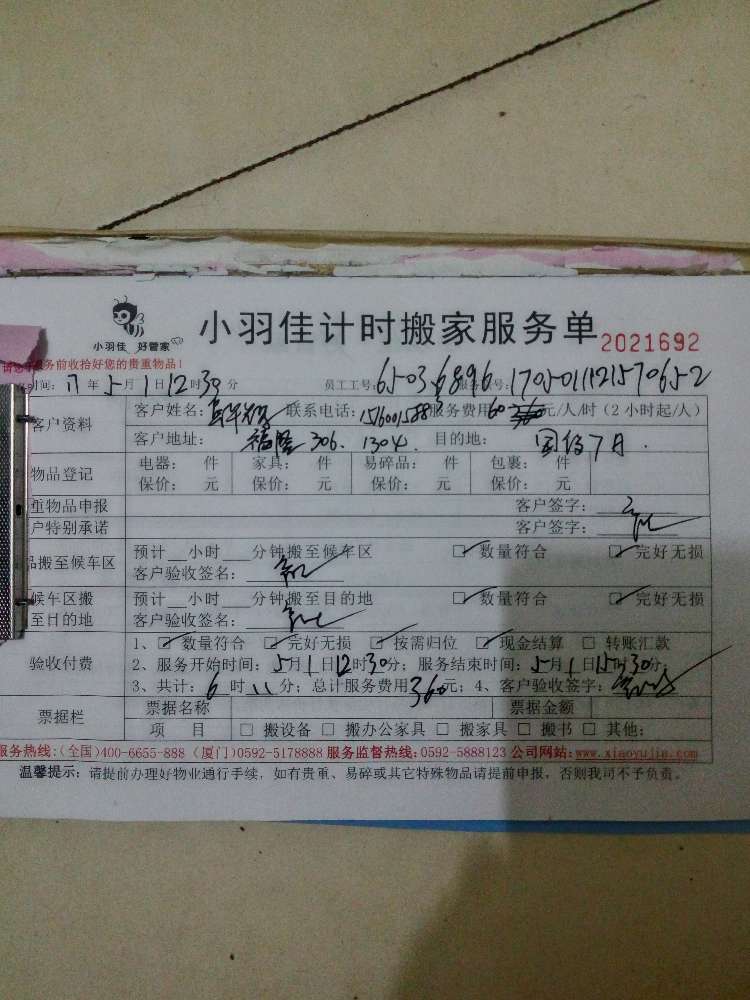 小羽佳 好管家
小羽佳计时搬家服务单 2021692
务前收拾好您的贵重物品!
时间: 17年5月1日12时30分 员工工号: 6503 6896 服务 号: 170501112157065-2
客户资料 客户姓名: 联系电话: 服务费用 60 元/人/时(2小时起/人)
客户地址: 福隆 306. 1304. 目的地:
物品登记 电器: 件 家具: 件 易碎品: 件 包裹: 件
保价: 元 保价: 元 保价: 元 保价: 元
重物品申报 客户签字:
户特别承诺 客户签字:
品搬至候车区 预计 小时 分钟搬至候车区 数量符合 完好无损
客户验收签名:
候车区搬至目的地 预计 小时 分钟搬至目的地 数量符合 完好无损
客户验收签名:
验收付费 1、 数量符合 完好无损 按需归位 现金结算 转账汇款
2、服务开始时间: 5月1日12时30分; 服务结束时间: 5月1日15时30分;
3、共计: 6时 分; 总计服务费用 360元; 4、客户验收签字:
票据栏 票据名称 票据金额
项 目 搬设备 搬办公家具 搬家具 搬书 其他:
服务热线:(全国)400-6655-888 (厦门)0592-5178888 服务监督热线:0592-5888123 公司网站:www.xiaoyujia.com
温馨提示: 请提前办理好物业通行手续, 如有贵重、易碎或其它特殊物品请提前申报, 否则我司不予负责。